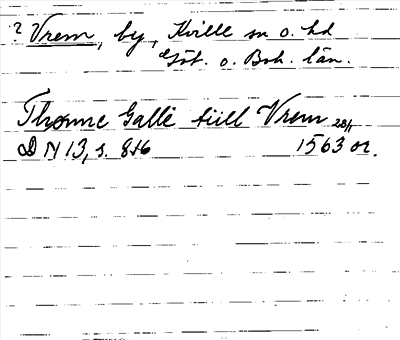 ? Vrem, by, Kville sn o. hd
Göt. o. Boh. län.
Thonne Galle till Vrem 28/1
DN 13, s. 846 1563 or.